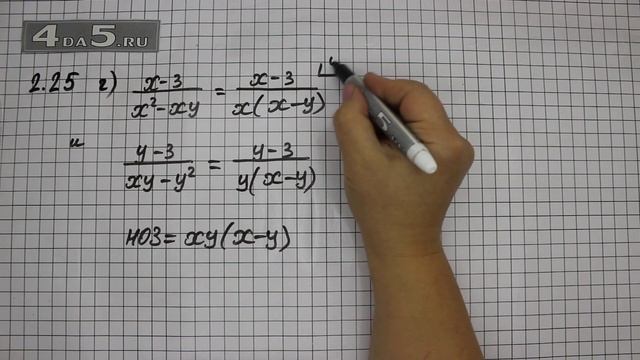 4DA5.RU
2.25 г) x-3/x²-xy = x-3/x(x-y)
и y-3/xy-y² = y-3/y(x-y)
НОЗ = xy(x-y)